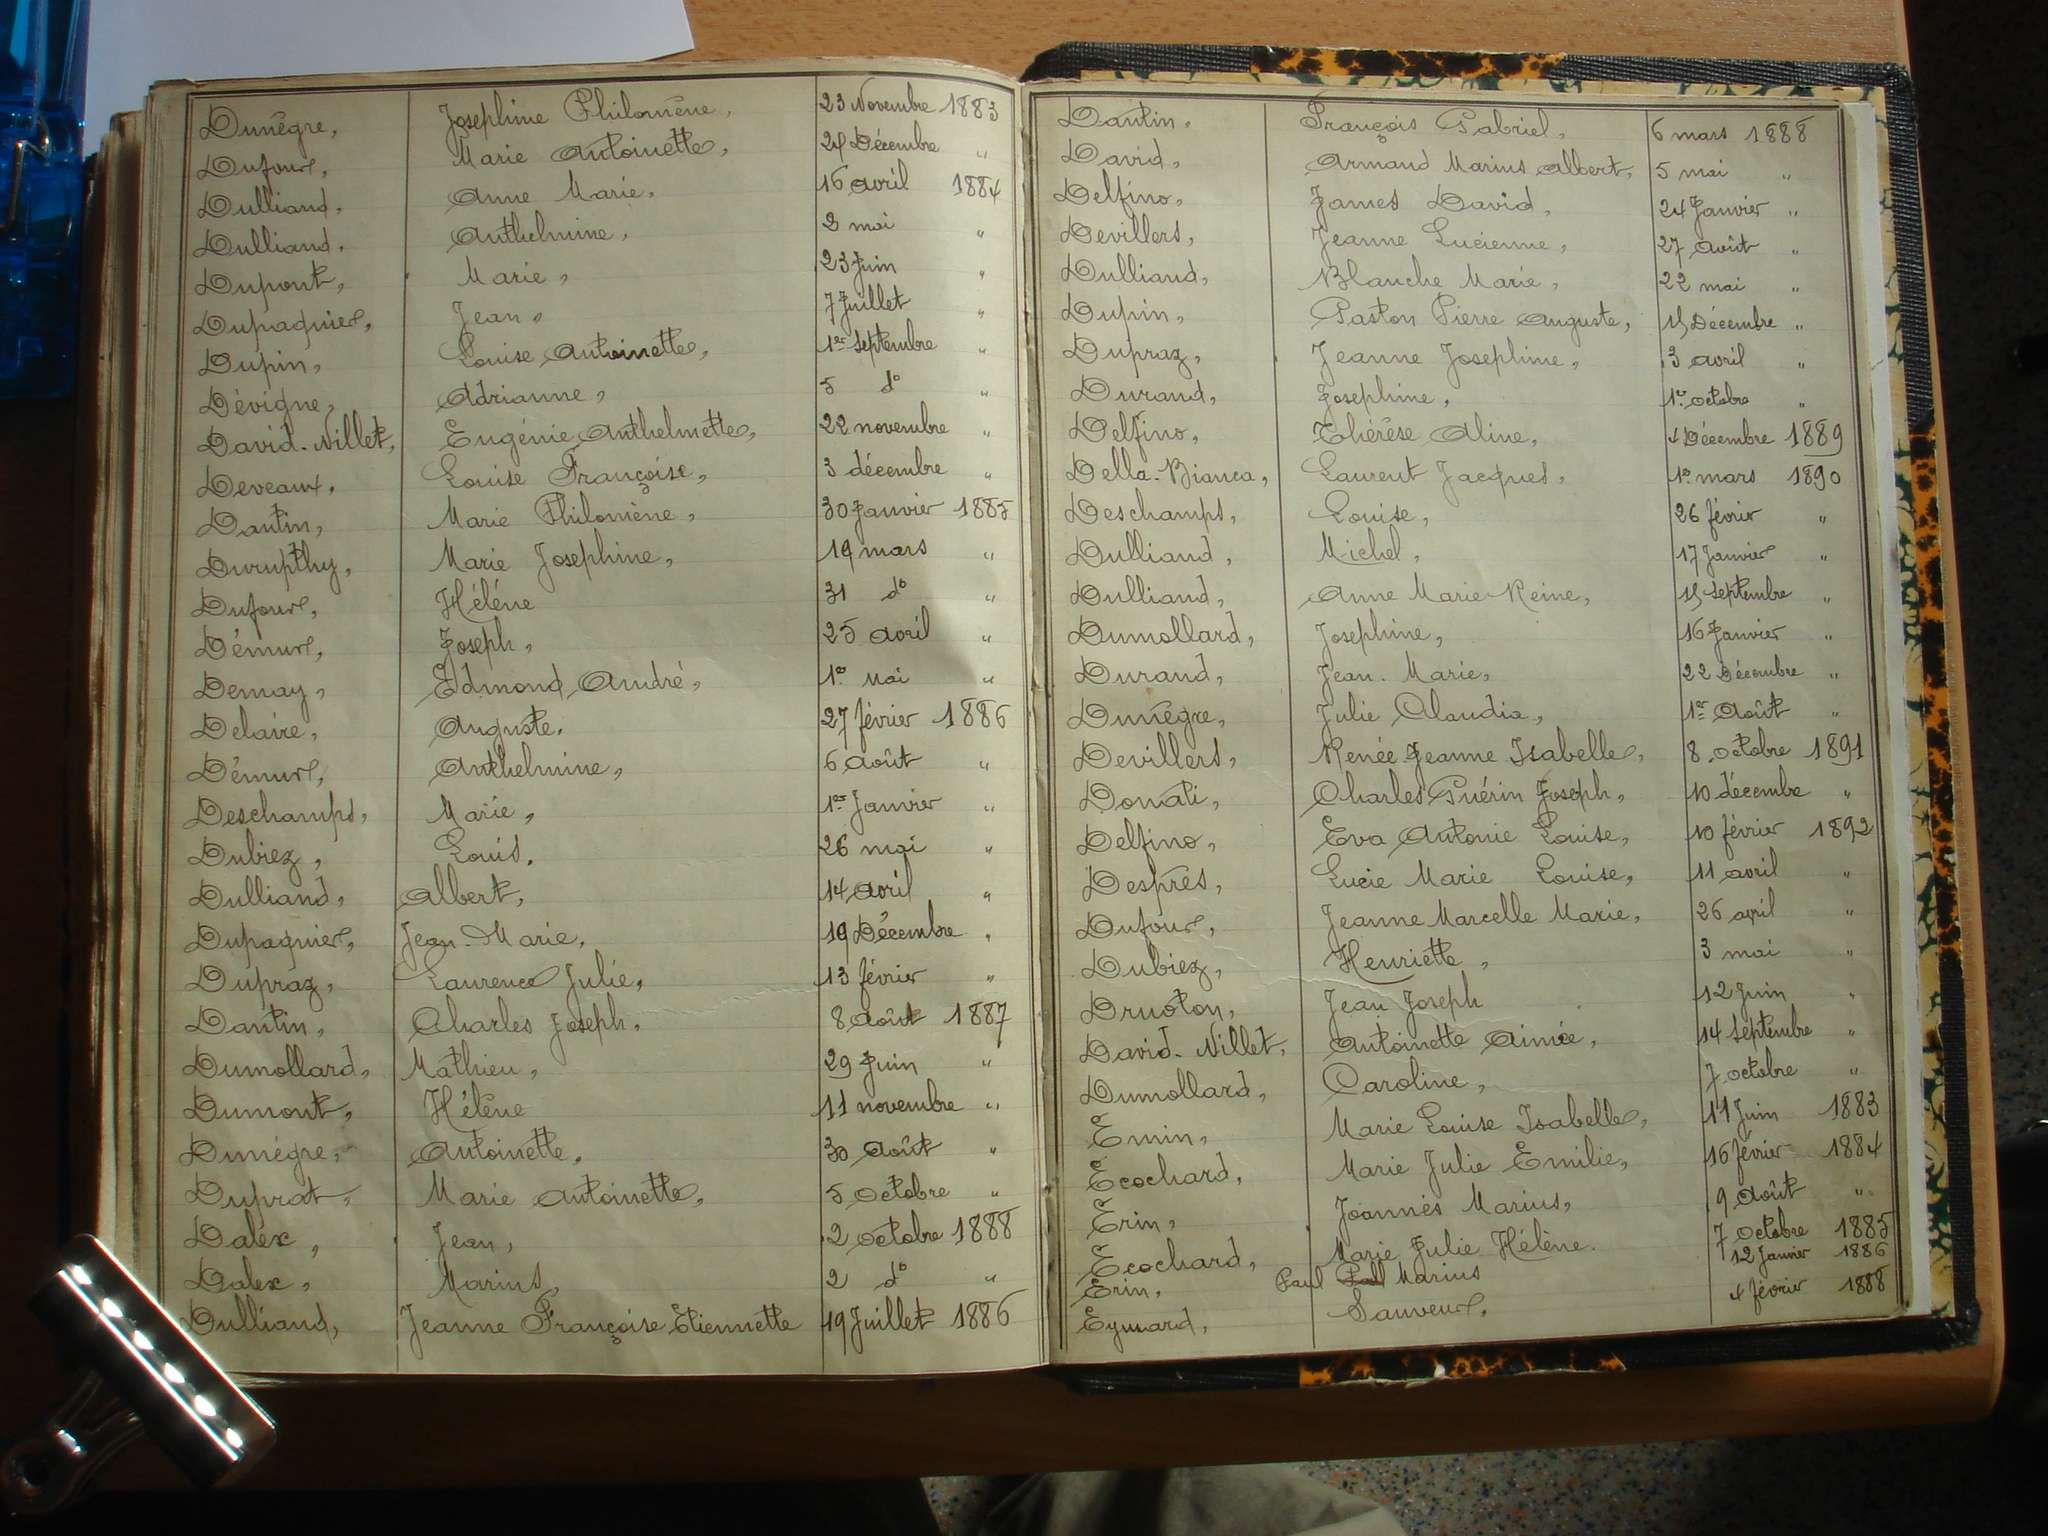 Dunègre, Josephine Philomène, 23 Novembre 1883
Dufour, Marie Antoinette, 24 Décembre "
Dulliand, Anne Marie, 16 avril 1884
Dulliand, Anthelmine, 2 mai "
Dupont, Marie, 23 Juin "
Dupaquier, Jean, 7 Juillet "
Dupin, Louise Antoinette, 1er Septembre "
Dévigne, Adrianne, 5 do "
David-Nillet, Eugénie Anthelmette, 22 novembre "
Deveaux, Louise Françoise, 3 décembre "
Dantin, Marie Philomène, 30 Janvier 1885
Durupthy, Marie Josephine, 19 mars "
Dufour, Hélène 31 do "
Démur, Joseph, 25 avril "
Demay, Edmond André, 1er Mai "
Delaire, Auguste, 27 février 1886
Démur, Anthelmine, 6 août "
Deschamps, Marie, 1er Janvier "
Dubiez, Louis, 26 mai "
Dulliand, Albert, 14 avril "
Dupaquier, Jean-Marie, 19 Décembre "
Dupraz, Laurence Julie, 13 février "
Dantin, Charles Joseph, 8 août 1887
Dumollard, Mathieu, 29 Juin "
Dumont, Hélène 11 novembre "
Dunégre, Antoinette, 30 août "
Duprat, Marie Antoinette, 5 Octobre "
Daléx, Jean, 2 octobre 1888
Dalex, Marius, 2 do "
Dulliand, Jeanne Françoise Etiennette 19 Juillet 1886
Dantin, François Gabriel, 6 mars 1888
David, Armand Marius Albert, 5 mai "
Delfino, James David, 24 Janvier "
Devillers, Jeanne Lucienne, 27 août "
Dulliand, Blanche Marie, 22 mai "
Dupin, Gaston Pierre Auguste, 15 Décembre "
Dupraz, Jeanne Josephine, 3 avril "
Durand, Josephine, 1er octobre "
Delfino, Thérèse Aline, 4 Décembre 1889
Della-Bianca, Laurent Jacques, 1er mars 1890
Deschamps, Louise, 26 février "
Dulliand, Michel, 17 Janvier "
Dulliand, Anne Marie-Reine, 15 septembre "
Dumollard, Josephine, 16 Janvier "
Durand, Jean-Marie, 22 Décembre "
Dunègre, Julie Claudia, 1er Août "
Devillers, Renée Jeanne Isabelle, 8 octobre 1891
Donati, Charles Guérin Joseph, 10 décembre "
Delfino, Eva Antonie Louise, 10 février 1892
Desprès, Lucie Marie Louise, 11 avril "
Dufour, Jeanne Marcelle Marie, 26 avril "
Dubiez, Henriette, 3 mai "
Druoton, Jean Joseph 12 Juin "
David-Nillet, Antoinette Aimée, 14 septembre "
Dumollard, Caroline, 7 octobre "
Emin, Marie Louise Isabelle, 11 Juin 1883
Ecochard, Marie Julie Emilie, 16 février 1884
Erin, Joannès Marius, 9 Août "
Ecochard, Marie Julie Hélène. 7 Octobre 1885
Erin, Paul Marius 12 Janvier 1886
Eymard, Sauveur, 4 février 1888